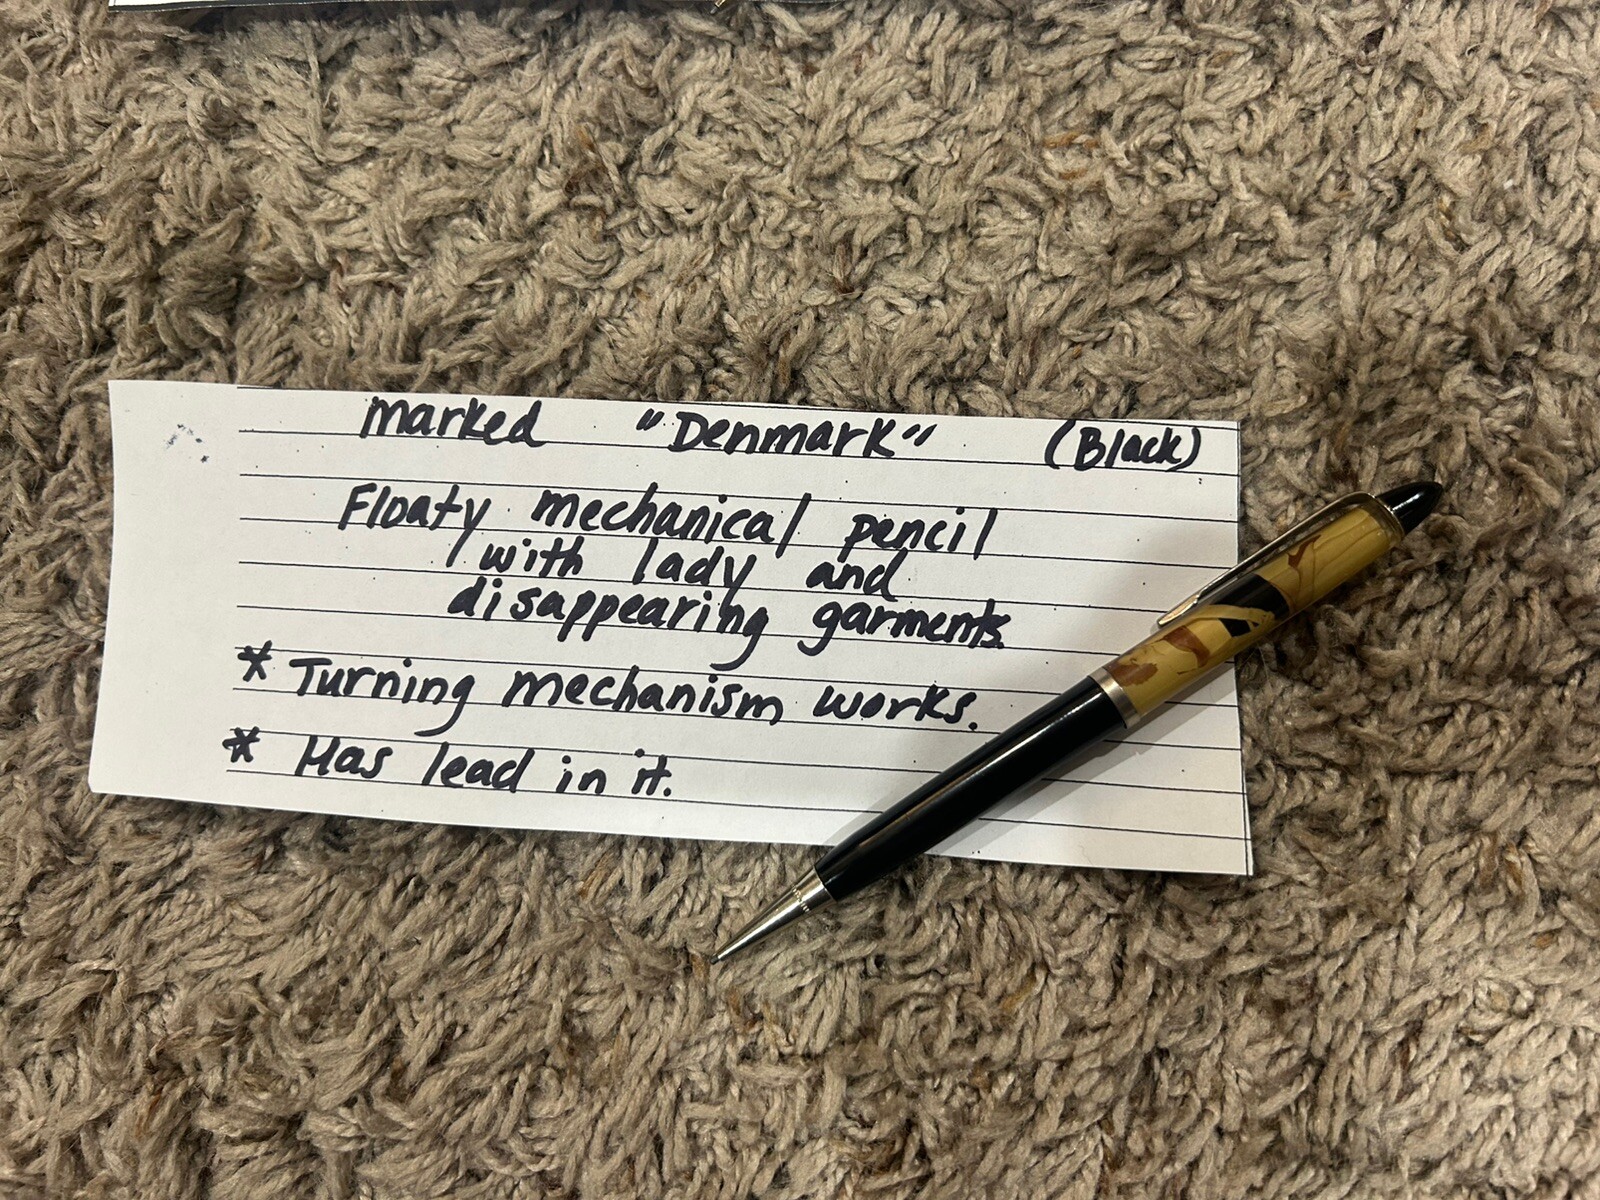 marked "Denmark" (Black)
Floaty mechanical pencil
with lady and
disappearing garments.
* Turning mechanism works.
* Has lead in it.